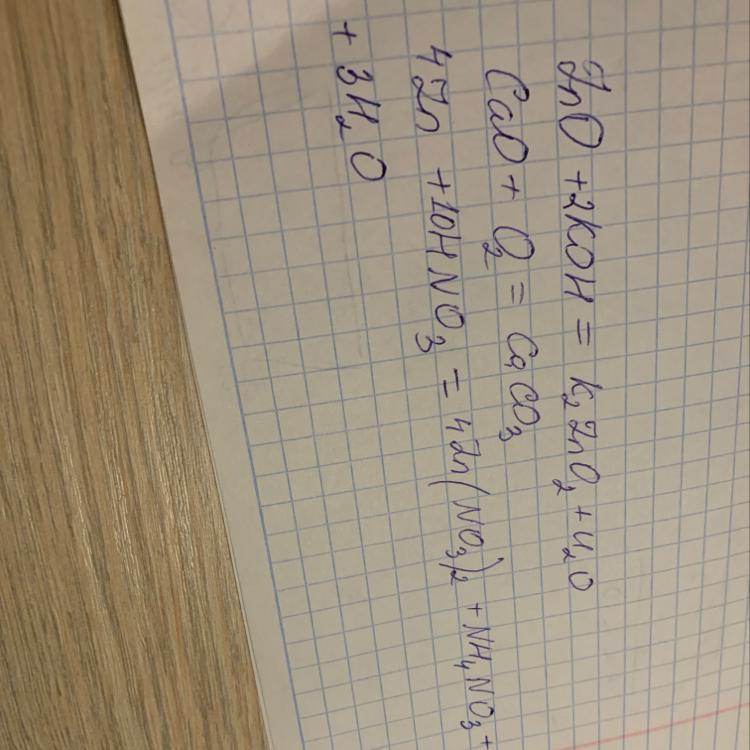 ZnO + 2KOH = K₂ZnO₂ + H₂O
CaO + O₂ = CaCO₃
4Zn + 10HNO₃ = 4Zn(NO₃)₂ + NH₄NO₃ +
+ 3H₂O